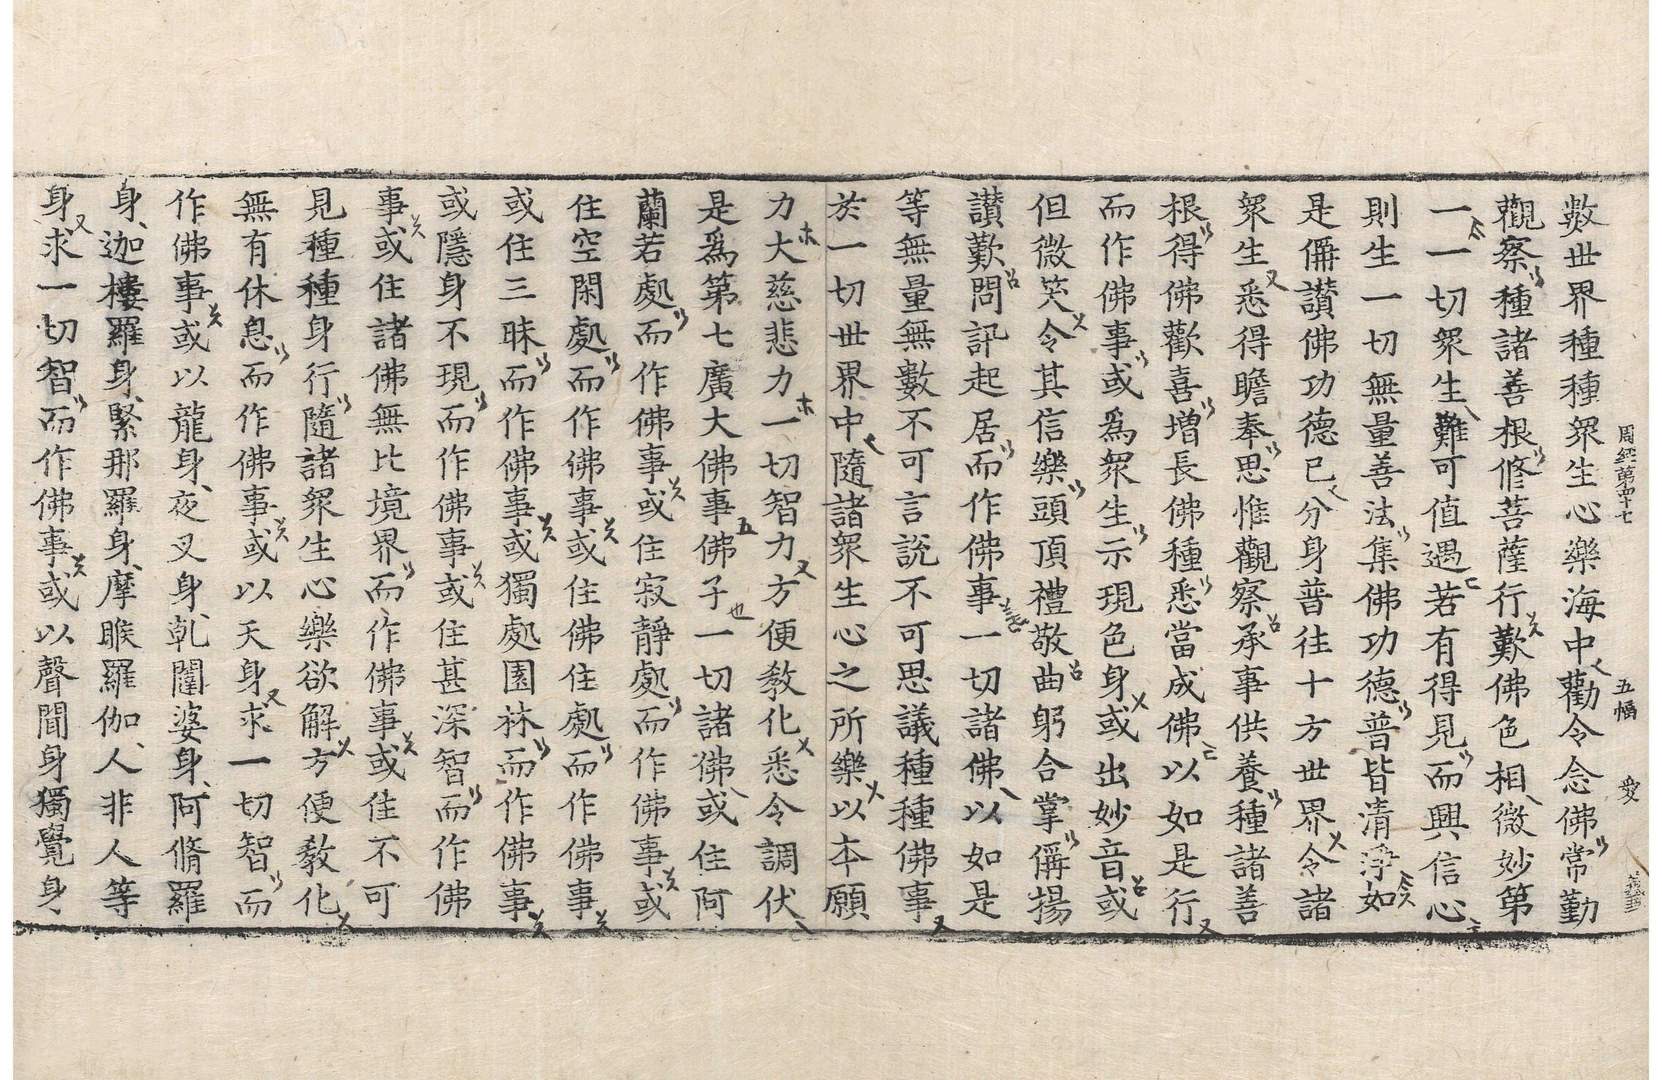 周經第四十七 五幅 愛
數世界種種衆生心樂海中勸令念佛常勤
觀察種諸善根修菩薩行歎佛色相微妙第
一一切衆生難可值遇若有得見而興信心
則生一切無量善法集佛功德普皆清淨如
是偁讃佛功德已分身普往十方世界令諸
衆生悉得瞻奉思惟觀察承事供養種諸善
根得佛歡喜增長佛種悉當成佛以如是行
而作佛事或爲衆生示現色身或出妙音或
但微笑令其信樂頭頂禮敬曲躬合掌偁揚
讃歎問訊起居而作佛事一切諸佛以如是
等無量無數不可言說不可思議種種佛事
於一切世界中隨諸衆生心之所樂以本願
力大慈悲力一切智力方便教化悉令調伏
是爲第七廣大佛事佛子一切諸佛或住阿
蘭若處而作佛事或住寂靜處而作佛事或
住空閑處而作佛事或住佛住處而作佛事
或住三昧而作佛事或獨處園林而作佛事
或隱身不現而作佛事或住甚深智而作佛
事或住諸佛無比境界而作佛事或住不可
見種種身行隨諸衆生心樂欲解方便教化
無有休息而作佛事或以天身求一切智而
作佛事或以龍身夜叉身乹闥婆身阿脩羅
身迦樓羅身緊那羅身摩睺羅伽人非人等
身求一切智而作佛事或以聲聞身獨覺身